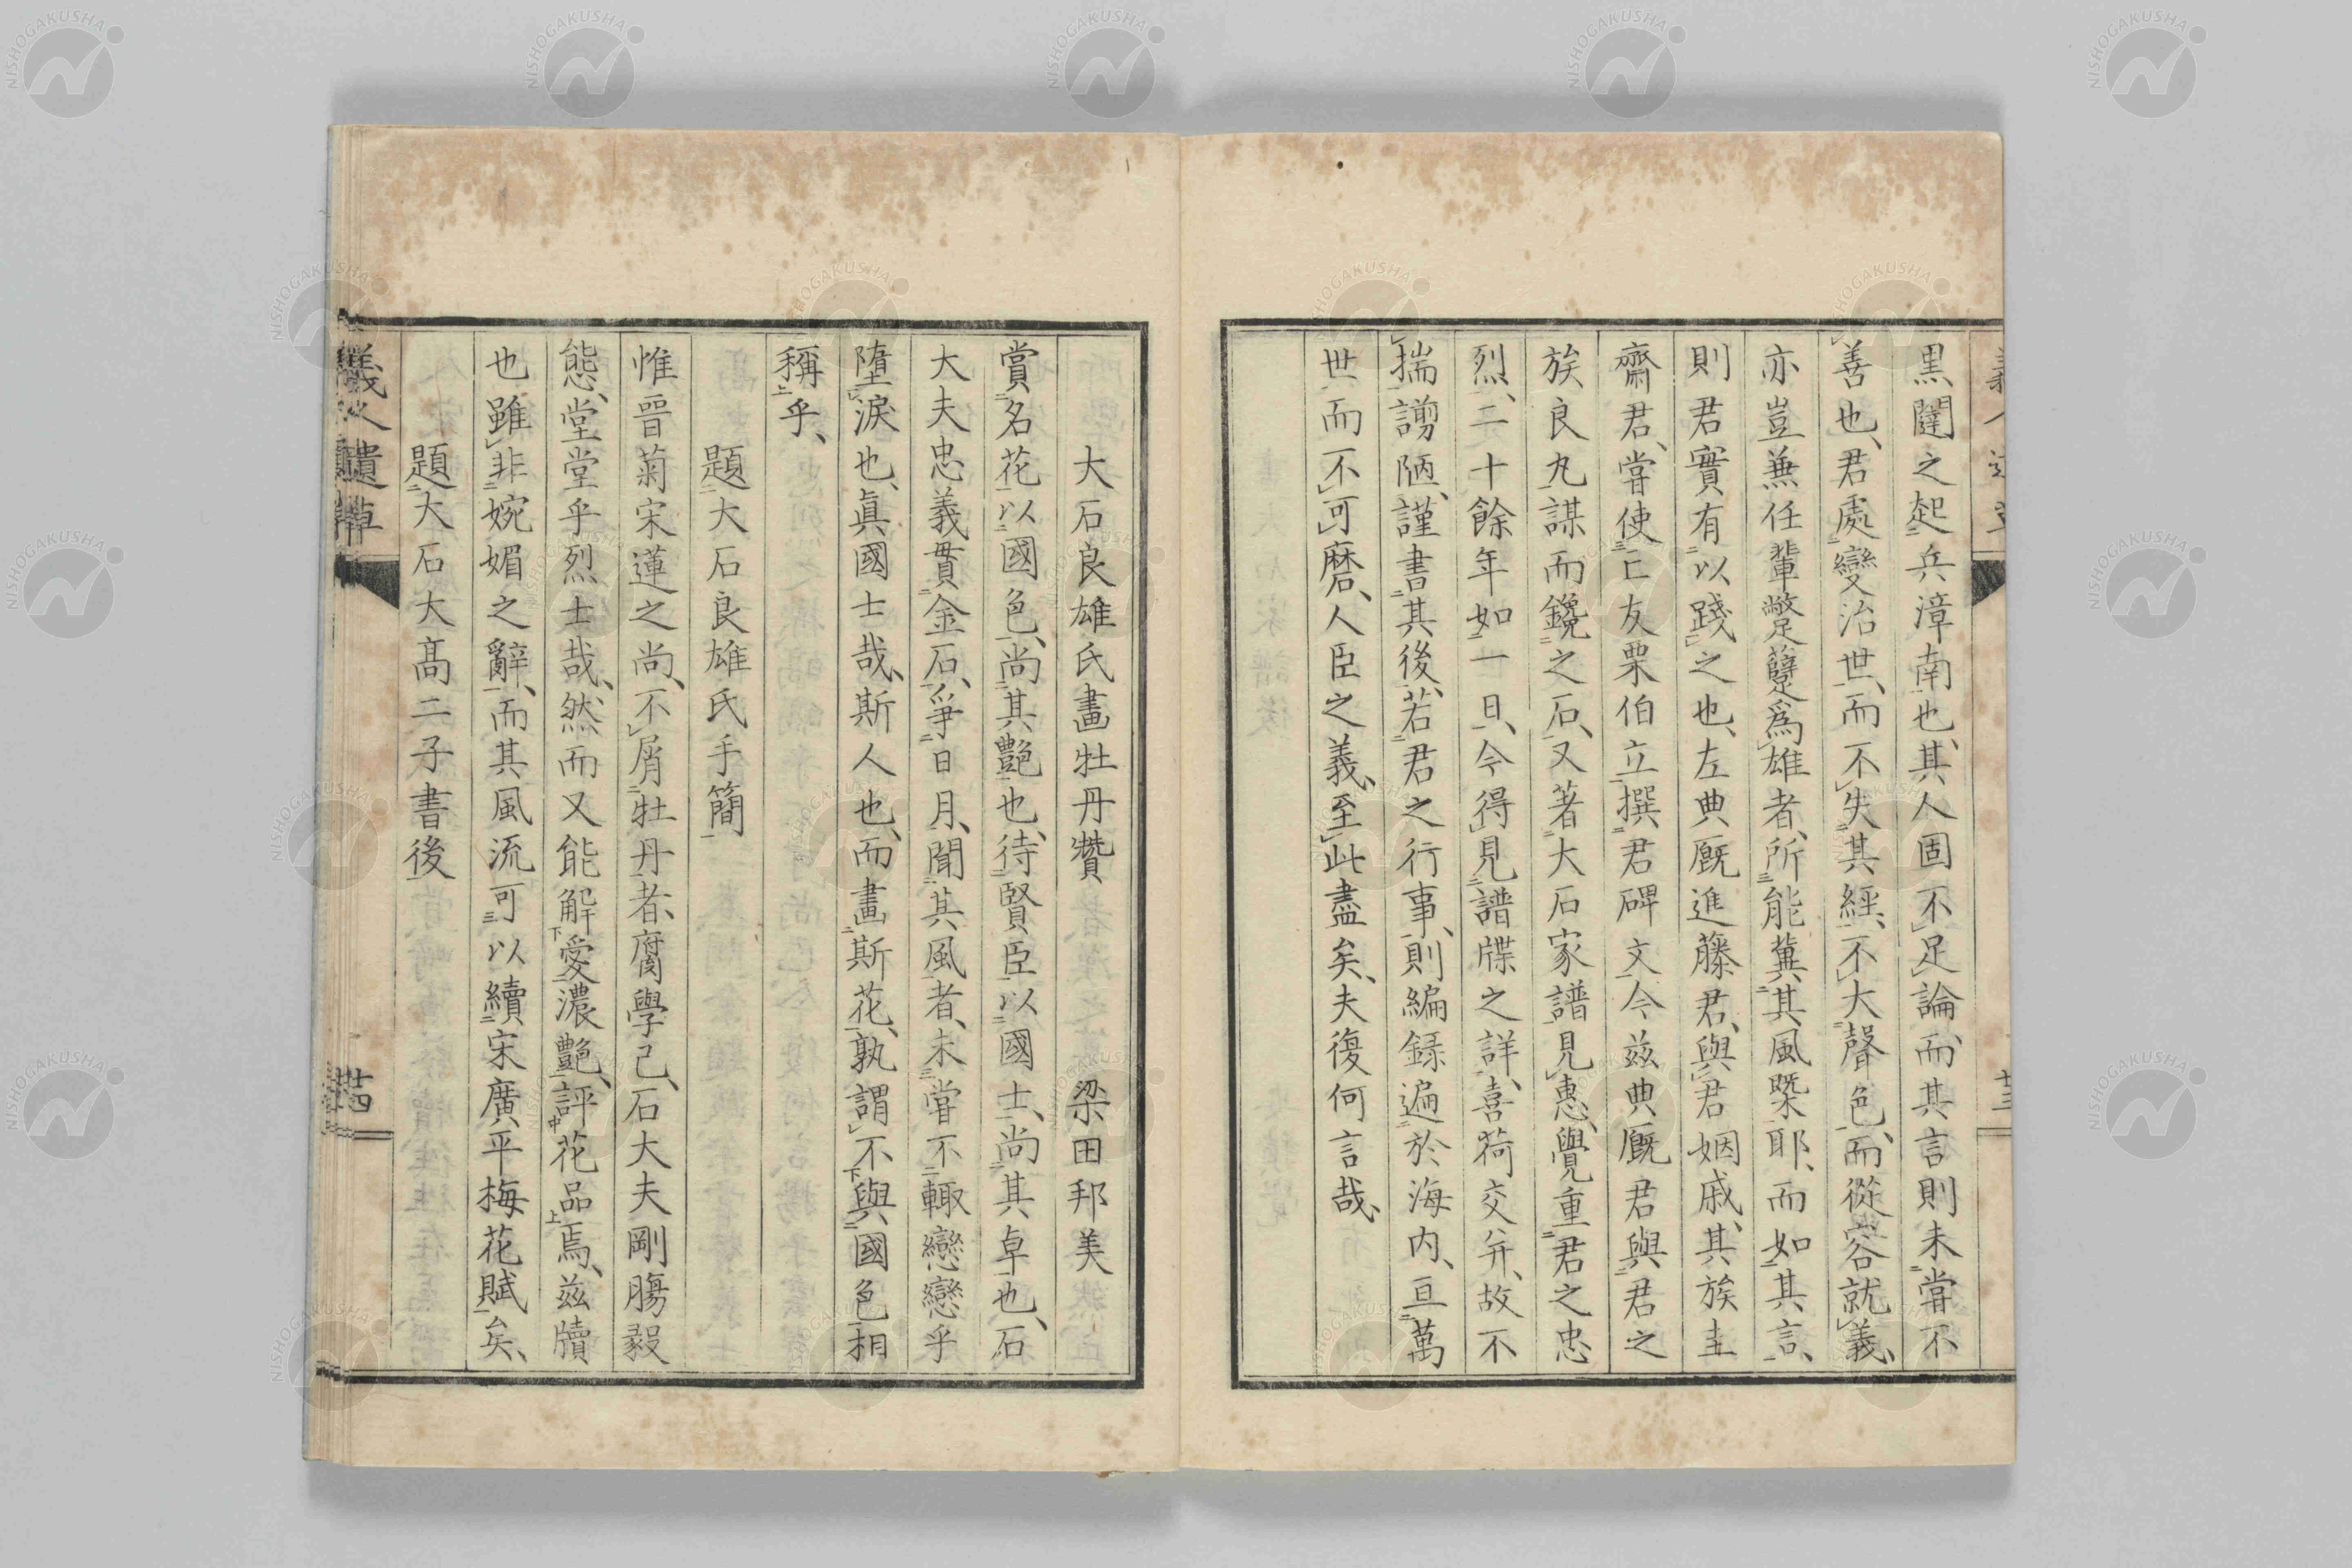 黒闥之起兵漳南也、其人固不足論、而其言則未嘗不
善也、君處變治世、而不失其經、不大聲色、而從容就義、
亦豈無任輩蹩躠爲雄者、所能冀其風槩耶、而如其言、
則君實有以踐之也、左典厩進藤君、與君姻戚、其族圭
齋君、嘗使亡友栗伯立撰君碑文、今茲典厩君與君之
族良丸謀而鑱之石、又著大石家譜見惠、覺重君之忠
烈、二十餘年如一日、今得見譜牒之詳、喜荷交并、故不
揣謭陋、謹書其後、若君之行事、則編録遍於海内、亘萬
世而不可磨、人臣之義、至此盡矣、夫復何言哉、
大石良雄氏畫牡丹贊 梁田邦美
賞名花以國色、尚其艶也、待賢臣以國士、尚其卓也、石
大夫忠義貫金石、爭日月、聞其風者、未嘗不輙戀戀乎
墮淚也、眞國士哉、斯人也、而畫斯花、孰謂不與國色相
稱乎、
題大石良雄氏手簡
惟晉菊宋蓮之尚、不屑牡丹者、腐學己、石大夫剛膓毅
態、堂堂乎烈士哉、然而又能解愛濃艶、評花品焉、茲牘
也雖非婉媚之辭、而其風流可以續宋廣平梅花賦矣、
題大石大髙二子書後
義人遺草
廿四
廿三
NISHOGAKUSHA